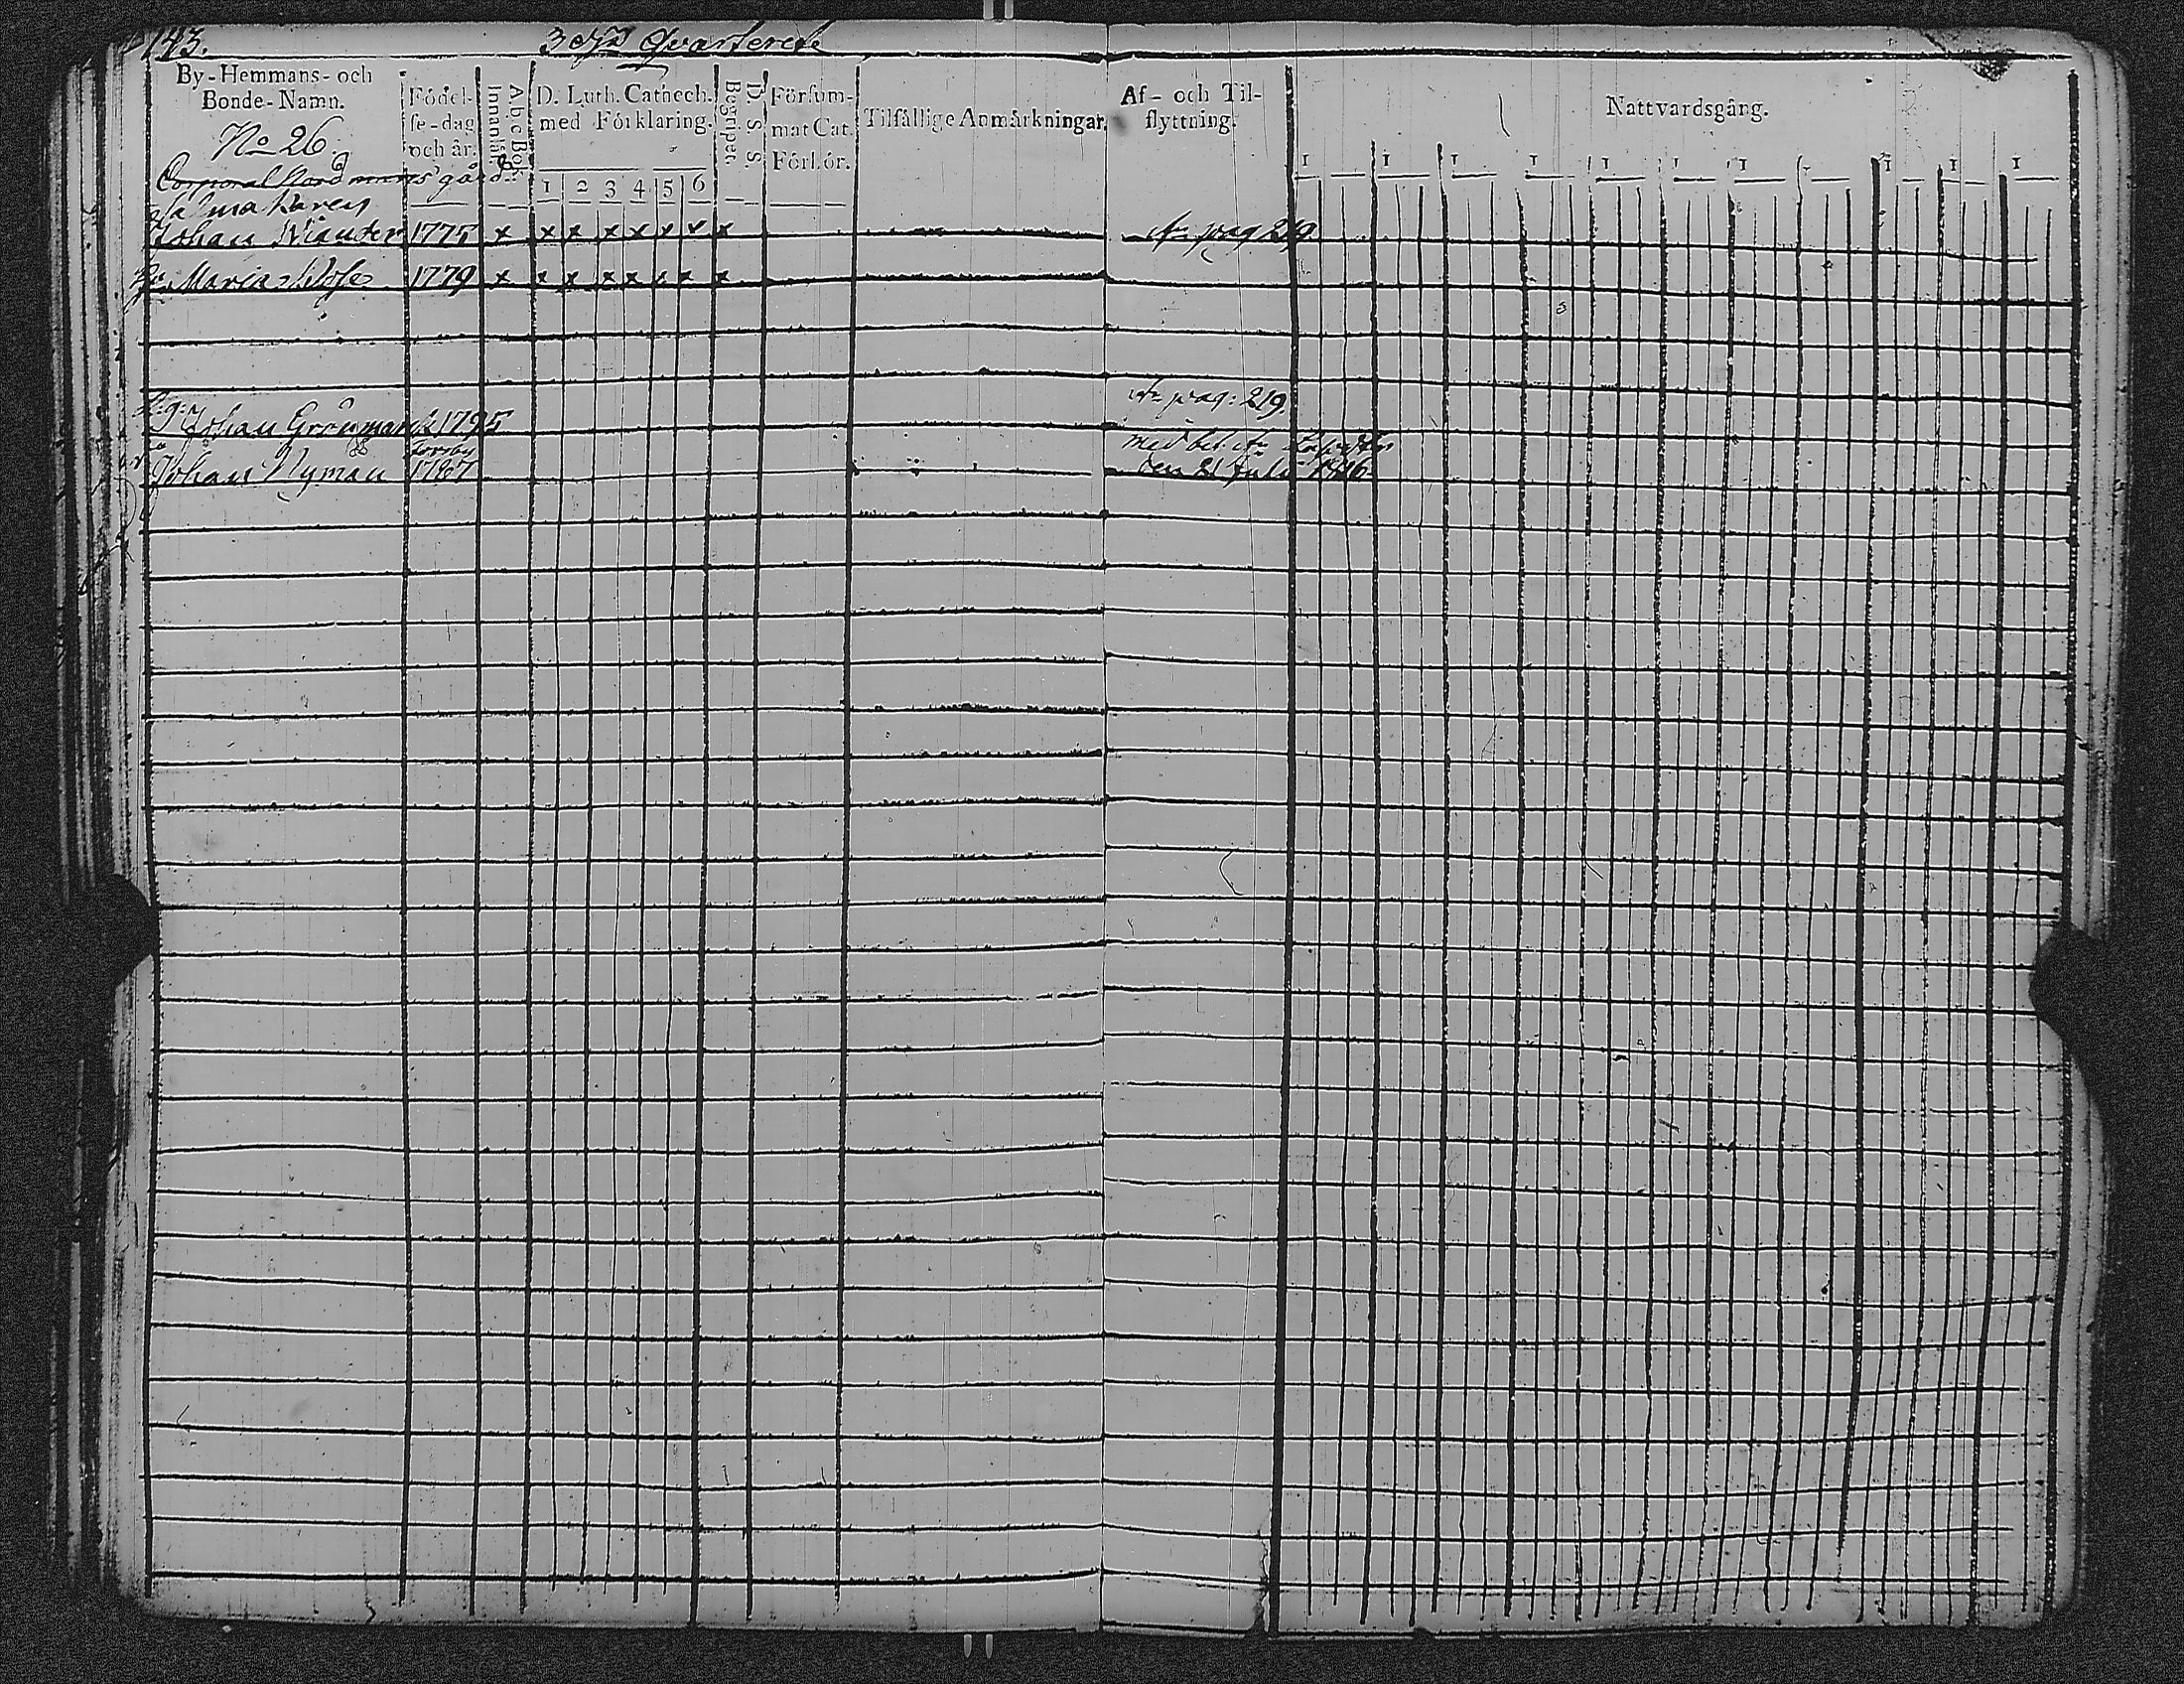 143.
3dje Qvarteret
By-Hemmans- och
Bonde-Namn.
Födel-
se-dag
och år.
Abc Bok
Innantil.
D. Luth. Cathech.
med Förklaring.
1 2 3 4 5 6
D. S. S.
Begripet.
Försum-
mat Cat.
Förhör.
Tilfällige Anmärkningar.
Af- och Til-
flyttning.
Nattvardsgång.
1 1 1 1 1 1 1 1 1 1 1
No 26.
Corporal Nordmans gård
Johan 1775 x x x x x x x x pag 219.
Maria 1779 x x x x x x x x
Johan Grönmarck 1795 pag: 219.
Johan Nyman 1787 med bet.
den 21 Julii